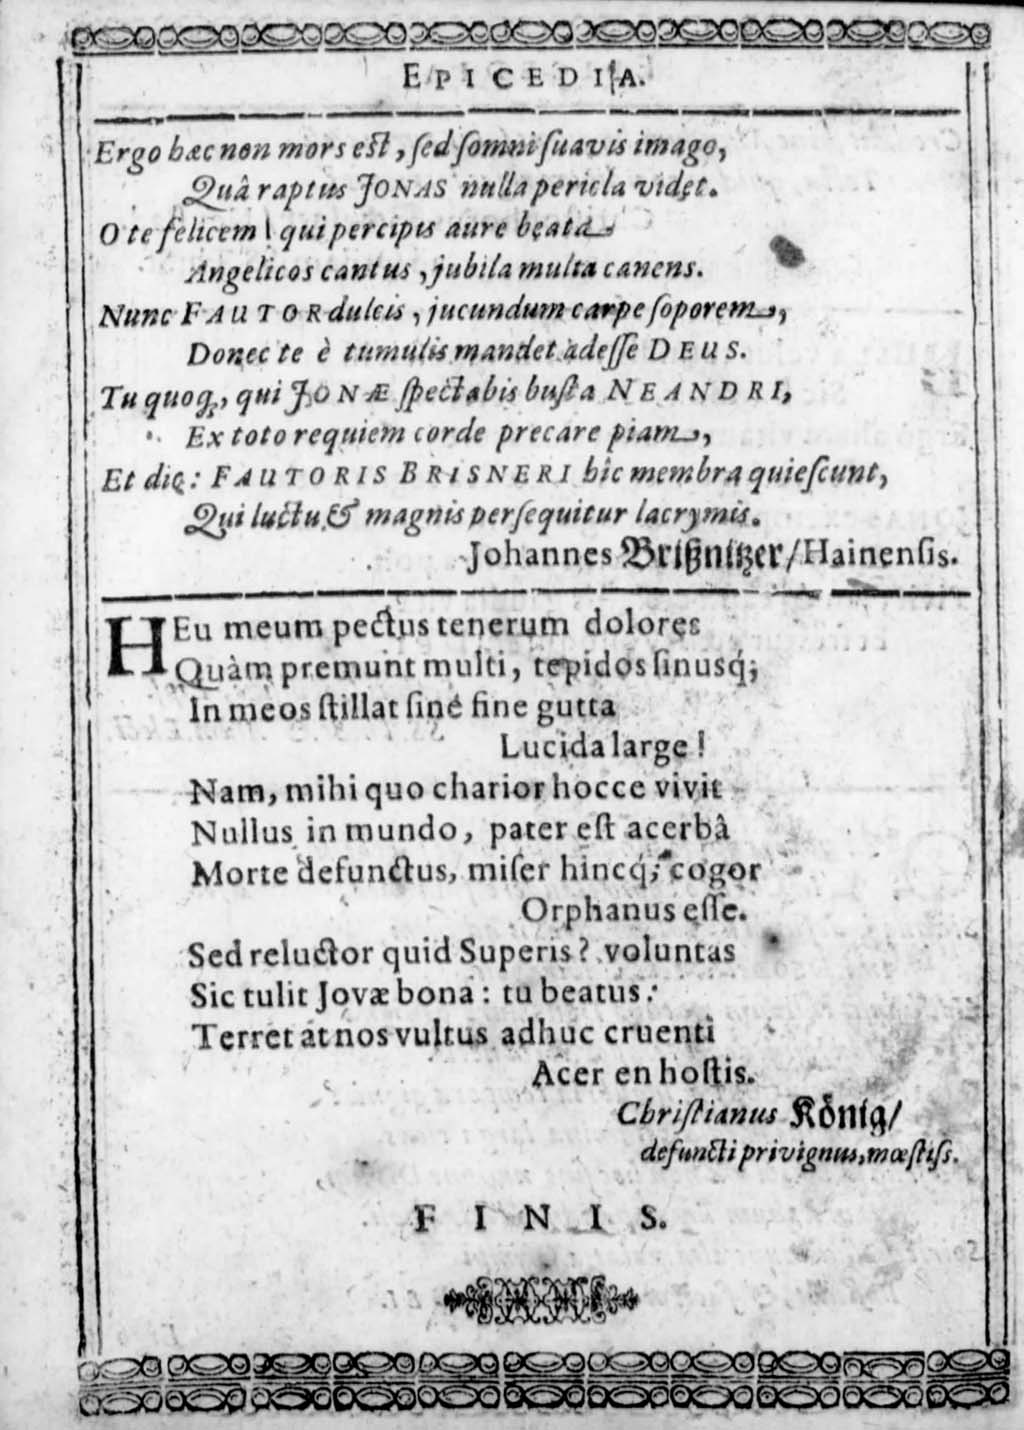 EPICEDIA.
Ergo hæc non mors eſt, ſed ſomni ſuavis imago,
Quâ raptus JONAS nulla pericla videt.
O te felicem! qui percipis aure beatâ
Angelicos cantus, jubila multa canens.
Nunc FAUTOR dulcis, jucundum carpe ſoporem,
Donec te è tumulis mandet adeſſe DEUS.
Tu quoq;, qui JONÆ ſpectabis buſta NEANDRI,
Ex toto requiem corde precare piam,
Et dic: FAUTORIS BRISNERI hîc membra quieſcunt,
Qui luctu & magnis perſequitur lacrymis.
Johannes Brißnitzer/Hainenſis.
HEu meum pectus tenerum dolores
Quàm premunt multi, tepidos ſinusq́;
In meos ſtillat ſinè fine gutta
Lucida large!
Nam, mihi quo charior hocce vivit
Nullus in mundo, pater eſt acerbâ
Morte defunctus, miſer hincq́; cogor
Orphanus eſſe.
Sed reluctor quid Superis? voluntas
Sic tulit Jovæ bona: tu beatus:
Terret at nos vultus adhuc cruenti
Acer en hoſtis.
Chriſtianus König/
defuncti privignus, mœſtiſs.
FINIS.